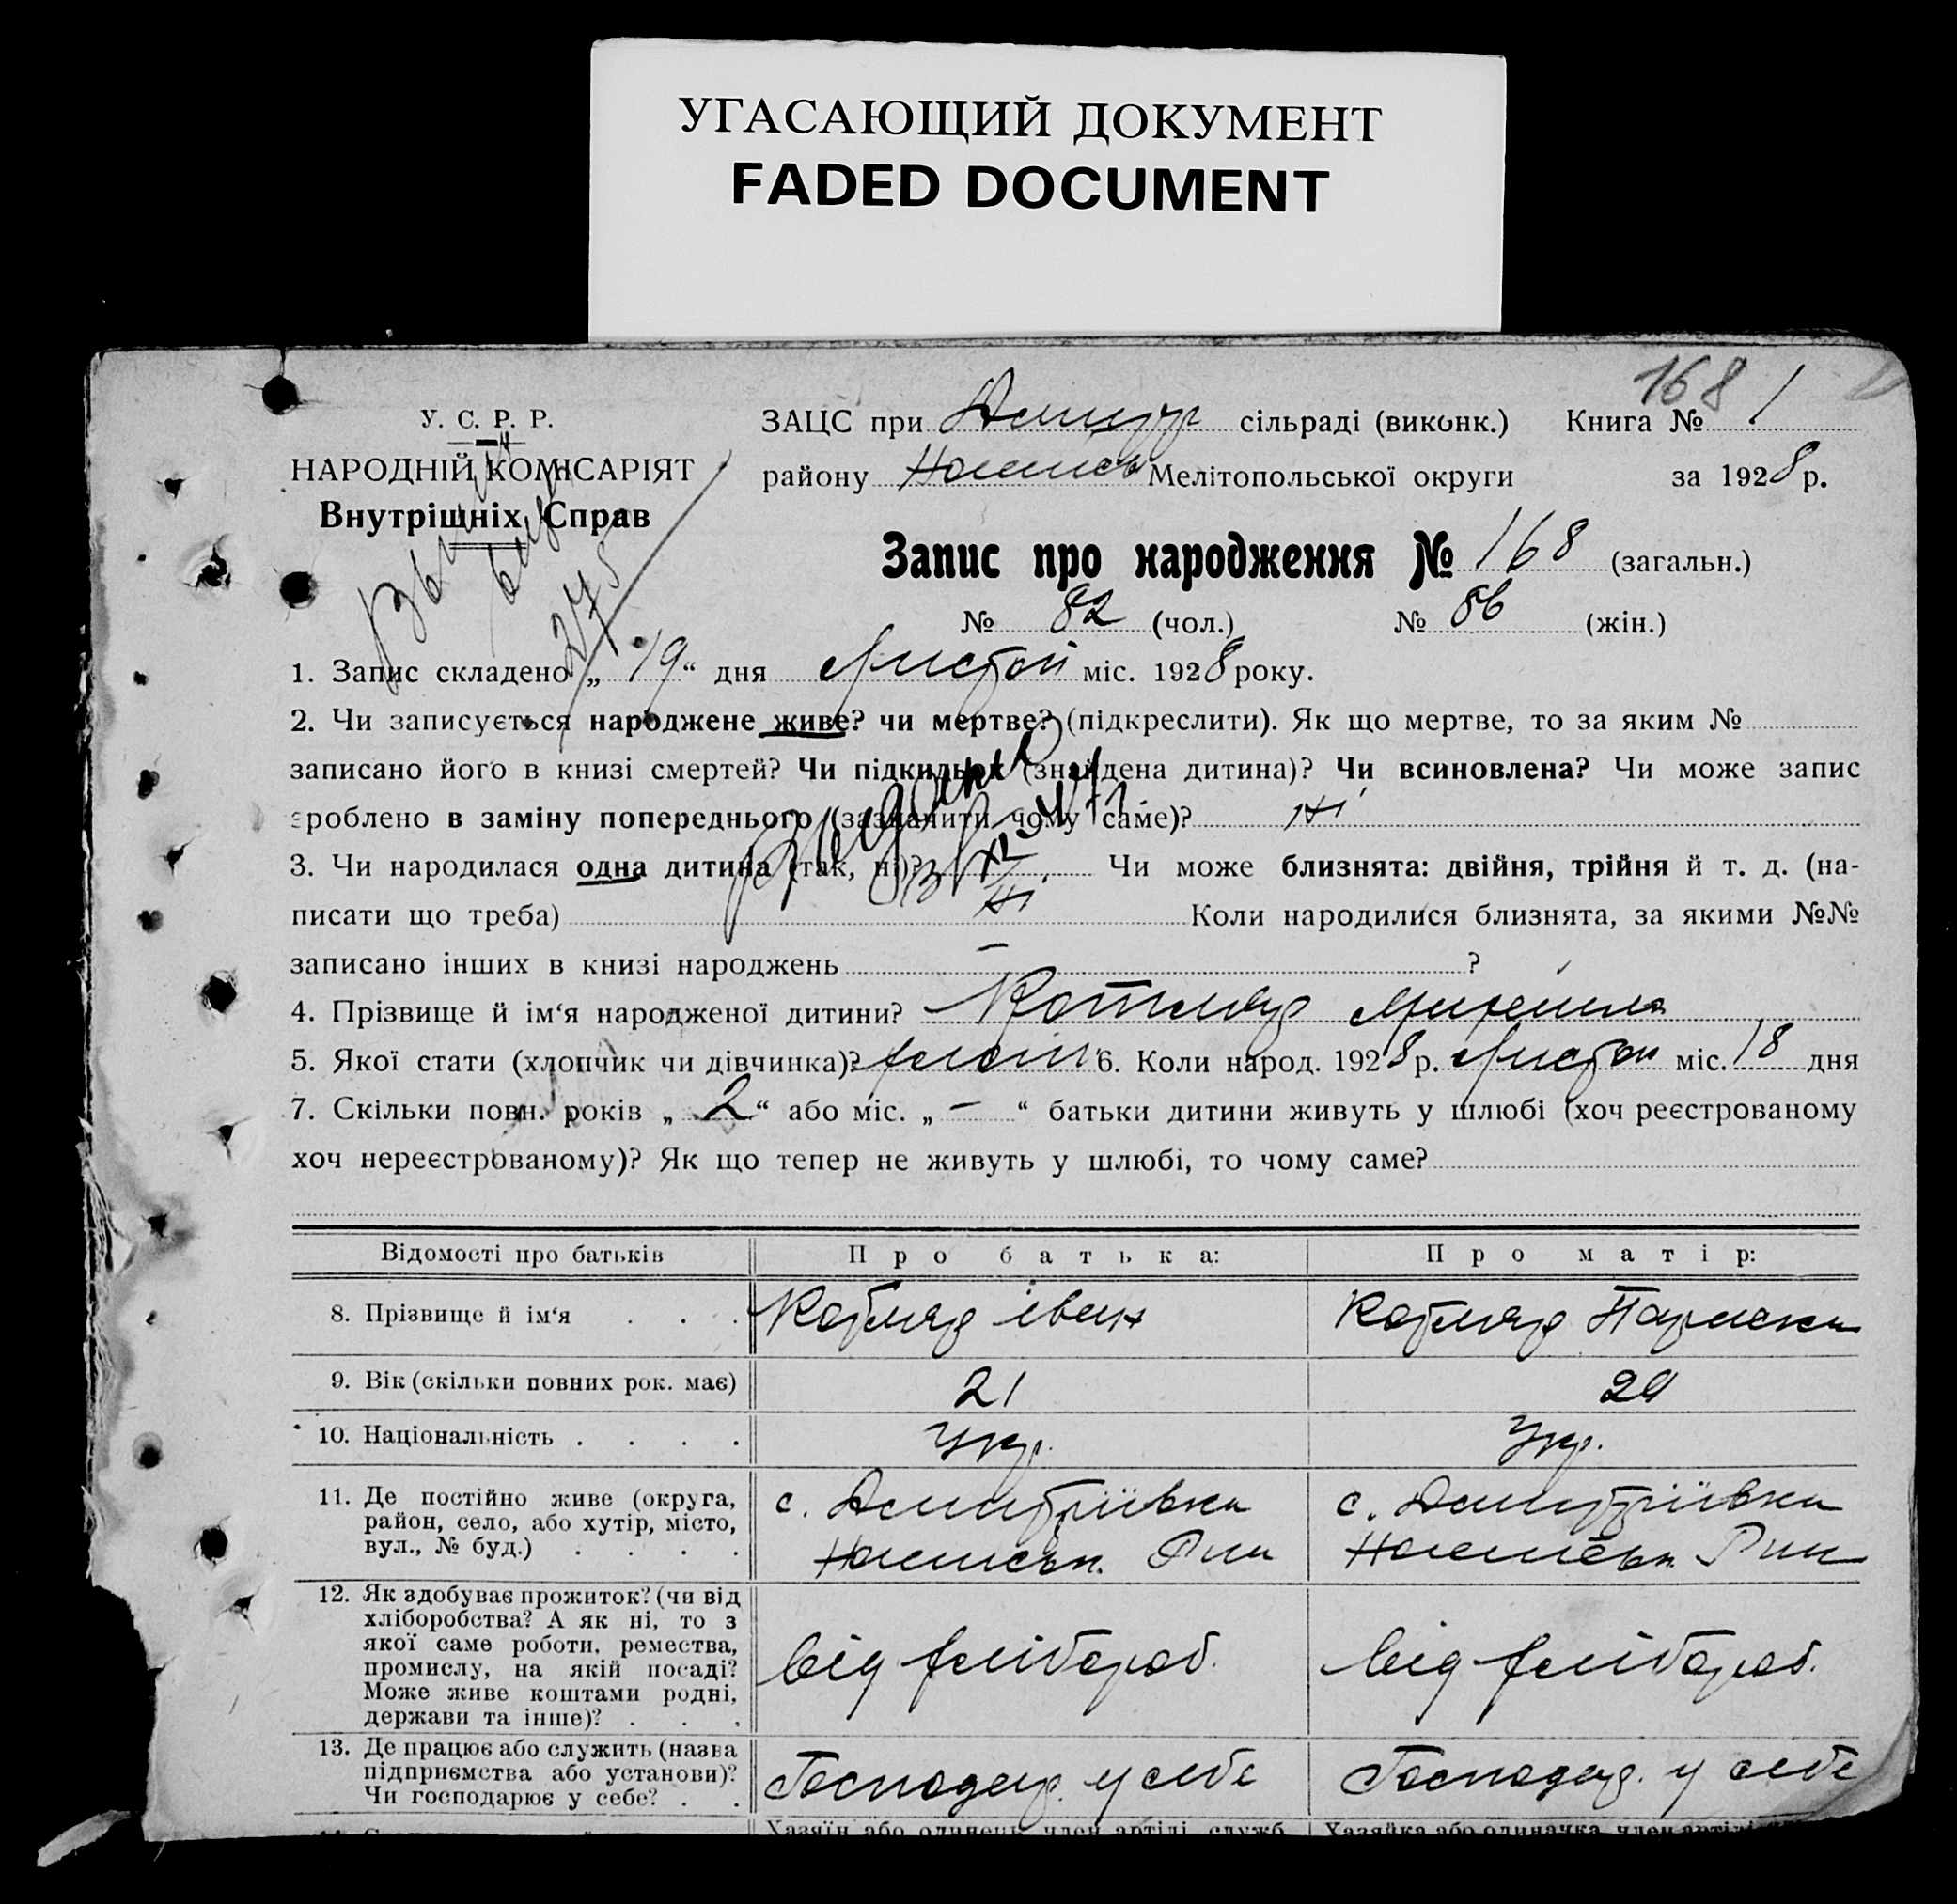 УГАСАЮЩИЙ ДОКУМЕНТ
FADED DOCUMENT
168
У. С. Р. Р.
НАРОДНІЙ КОМІСАРІЯТ
Внутрішніх Справ
ЗАЦС при Дмитр сільраді (виконк.) Книга № 1
району Мелітопольської округи за 1928 р.
Запис про народження № 168 (загальн.)
№ 82 (чол.) № 86 (жін.)
275
1. Запис складено „ 19 “ дня Листоп міс. 1928 року.
2. Чи записується народжене живе? чи мертве? (підкреслити). Як що мертве, то за яким №
записано його в книзі смертей? Чи підкидьок (знайдена дитина)? Чи всиновлена? Чи може запис
зроблено в заміну попереднього (зазначити чому саме)? ні
3. Чи народилася одна дитина (так, ні)? Чи може близнята: двійня, трійня й т. д. (на-
писати що треба) ні Коли народилися близнята, за якими №№
записано інших в книзі народжень — ?
4. Прізвище й ім‘я народженої дитини? Котляр Михайло
5. Якої стати (хлопчик чи дівчинка)? хлопч 6. Коли народ. 1928 р. Листоп міс. 18 дня
7. Скільки повн. років „ 2 “ або міс. „ — “ батьки дитини живуть у шлюбі (хоч реєстрованому
хоч нереєстрованому)? Як що тепер не живуть у шлюбі, то чому саме?
Відомості про батьків Про батька: Про матір:
8. Прізвище й ім‘я . . . Котляр Іван Котляр Параска
9. Вік (скільки повних рок. має) 21 20
10. Національність . . . . Укр. Укр.
11. Де постійно живе (округа,
район, село, або хутір, місто,
вул., № буд.) . . . .
с. Дмитріївка
с. Дмитріївка
12. Як здобуває прожиток? (чи від
хліборобства? А як ні, то з
якої саме роботи, ремества,
промислу, на якій посаді?
Може живе коштами родні,
держави та інше)? . . .
від хлібороб. від хлібороб.
13. Де працює або служить (назва
підприємства або установи)?
Чи господарює у себе? . .
Господар. у себе Господар. у себе
Хазяїн або одинець, член артілі, служб. Хазяйка або одиначка, член артілі